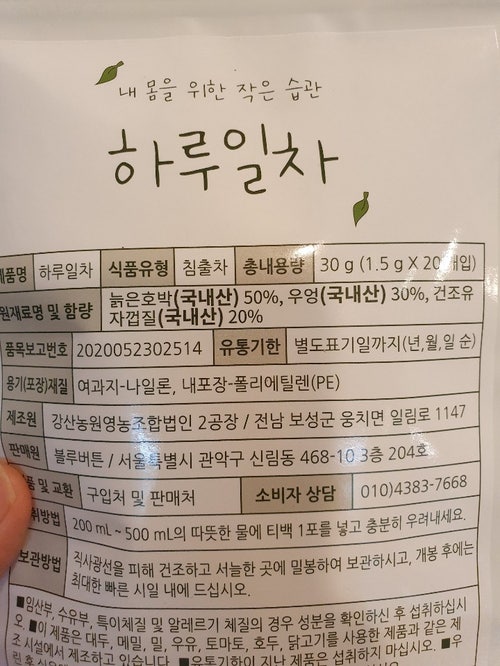 내 몸을 위한 작은 습관
하루일차
제품명 하루일차 식품유형 침출차 총내용량 30 g (1.5 g X 20개입)
원재료명 및 함량 늙은호박(국내산) 50%, 우엉(국내산) 30%, 건조유
자껍질(국내산) 20%
품목보고번호 2020052302514 유통기한 별도표기일까지(년,월,일 순)
용기(포장)재질 여과지-나일론, 내포장-폴리에틸렌(PE)
제조원 강산농원영농조합법인 2공장 / 전남 보성군 웅치면 일림로 1147
판매원 블루버튼 / 서울특별시 관악구 신림동 468-10 3층 204호
품 및 교환 구입처 및 판매처 소비자 상담 010)4383-7668
취방법 200 mL ~ 500 mL의 따뜻한 물에 티백 1포를 넣고 충분히 우려내세요.
보관방법 직사광선을 피해 건조하고 서늘한 곳에 밀봉하여 보관하시고, 개봉 후에는
최대한 빠른 시일 내에 드십시오.
■임산부, 수유부, 특이체질 및 알레르기 체질의 경우 성분을 확인하신 후 섭취하십시
오. ■이 제품은 대두, 메밀, 밀, 우유, 토마토, 호두, 닭고기를 사용한 제품과 같은 제
조 시설에서 제조하고 있습니다. ■유통기한이 지난 제품은 섭취하지 마십시오. ■우